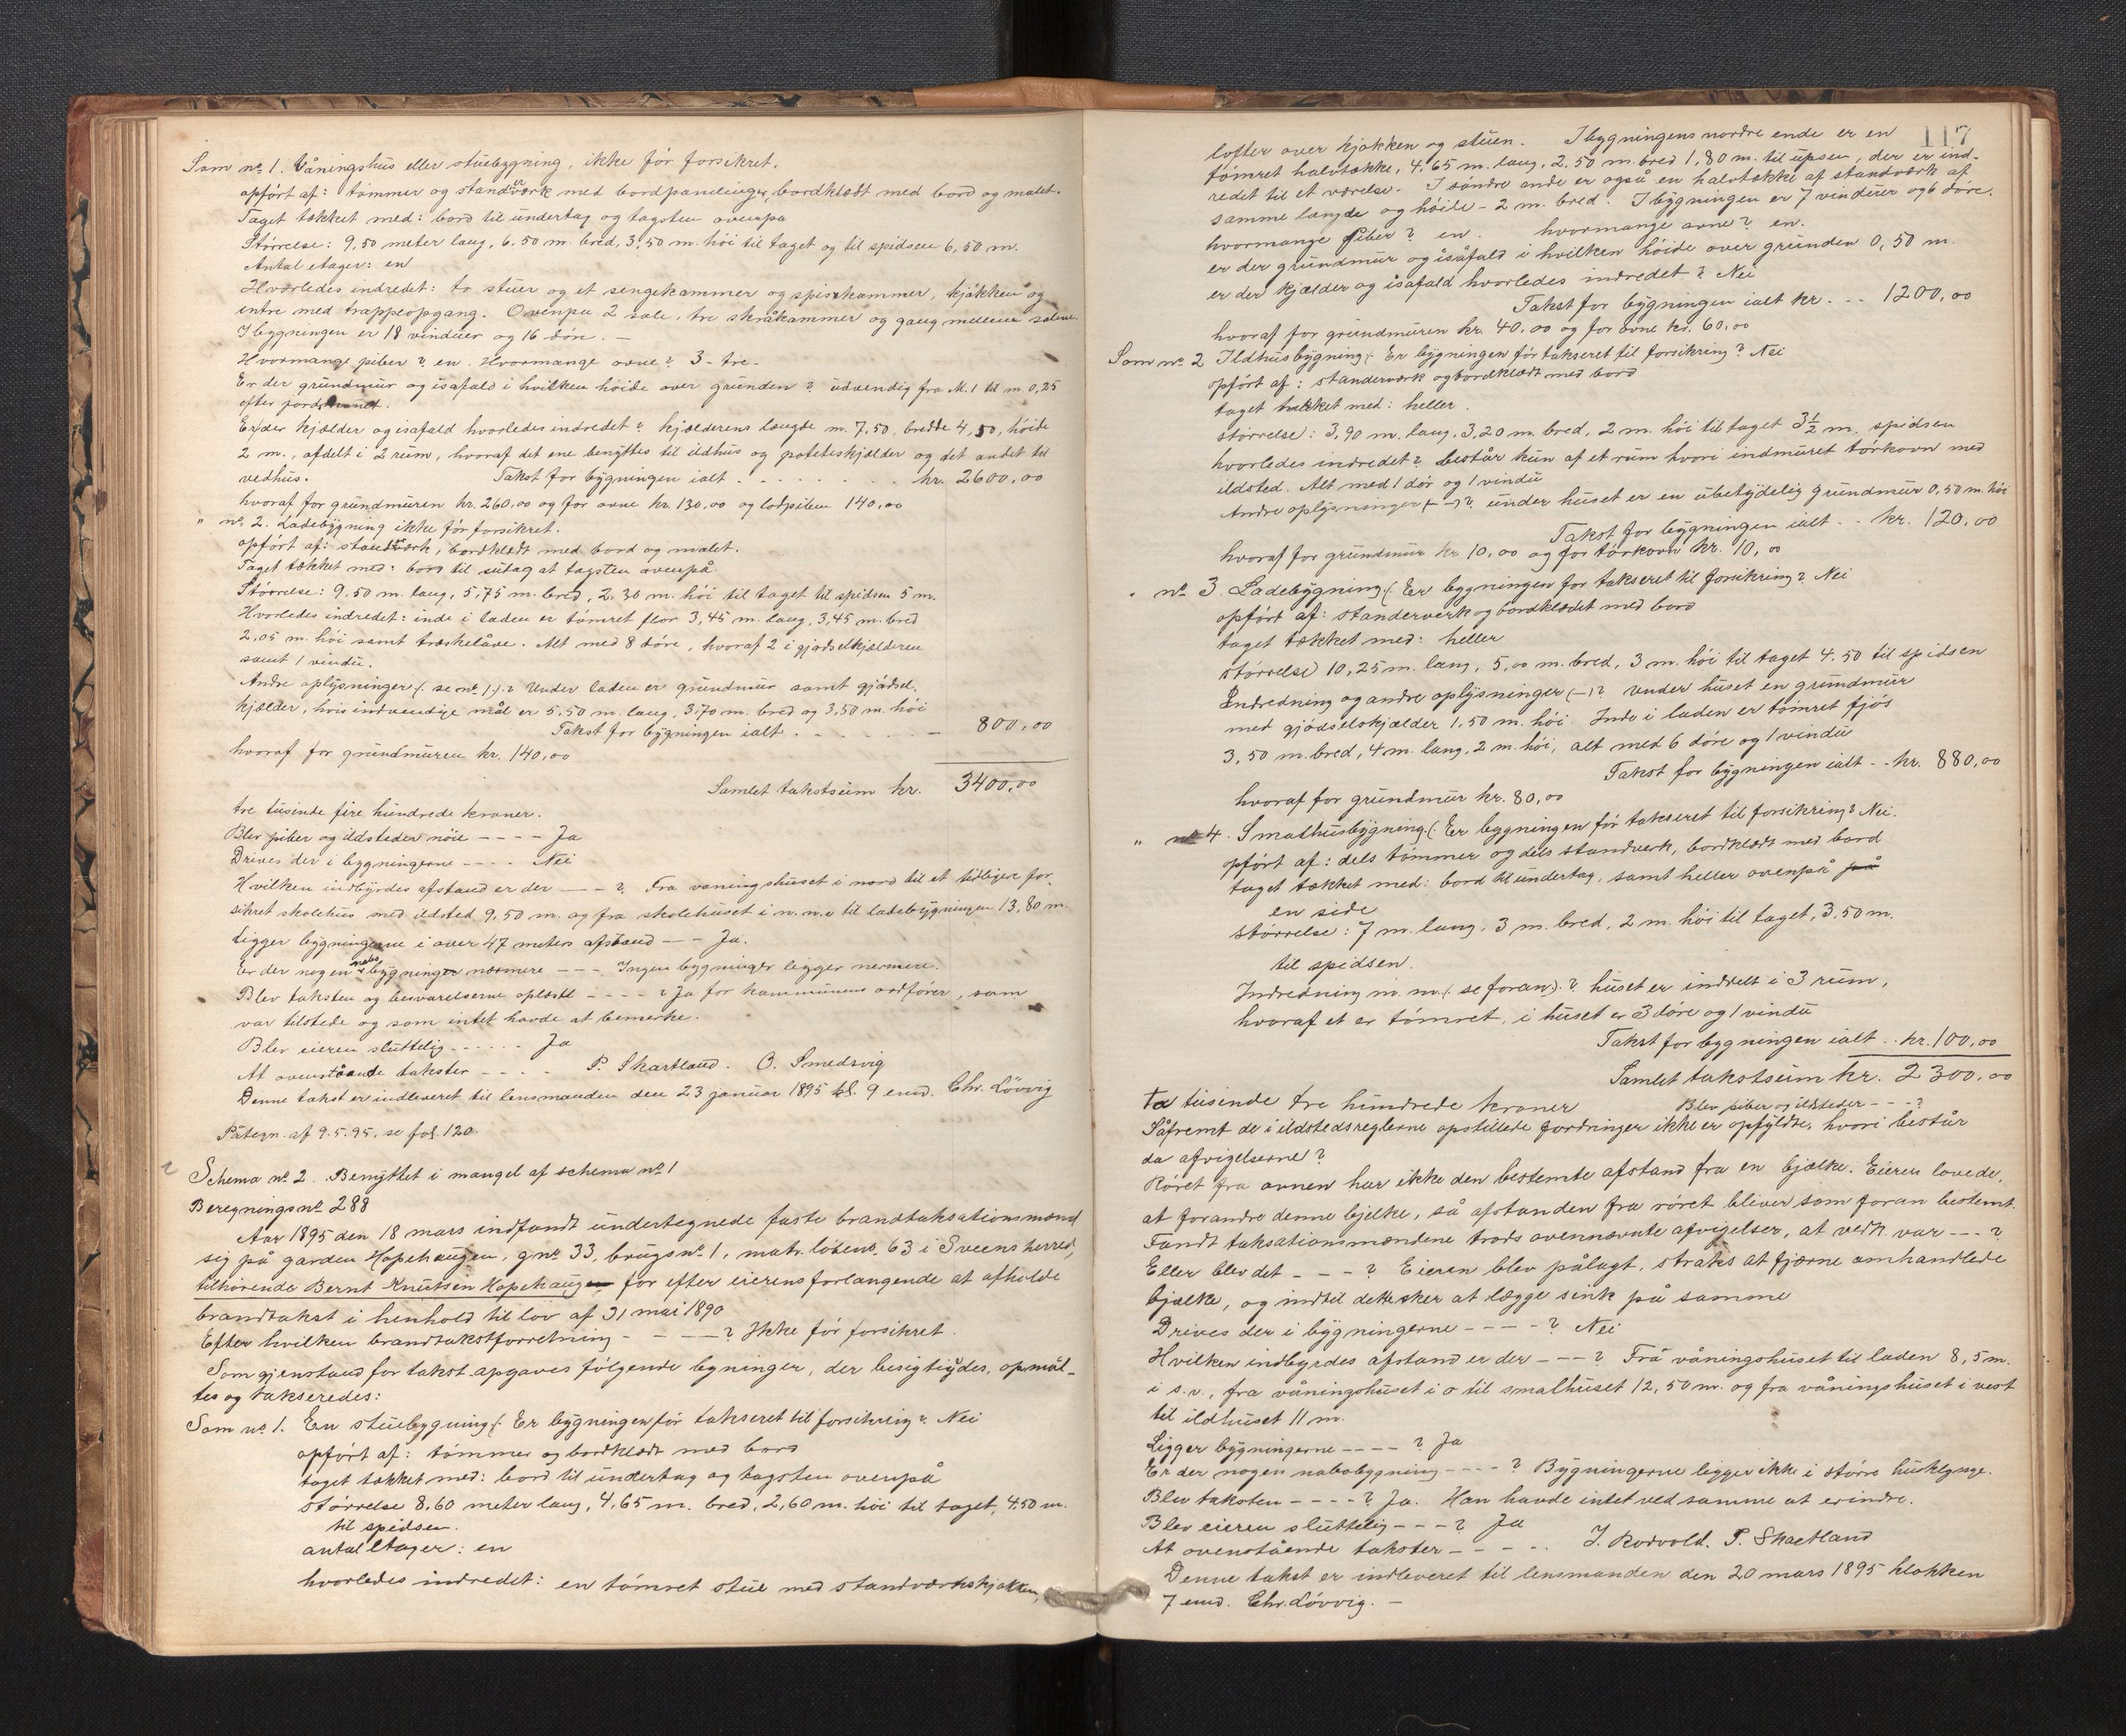 Som no 1. Våningshus eller stuebygning, ikke før forsikret.
opført af: tømmer og standværk med bordpanelinger, bordklædt med bord og malet.
Taget tækket med: bord til undertag og tagsten ovenpå
Størrelse: 9,50 meter lang, 6,50 m. bred, 3,50 m. høi til taget og til spidsen 6,50 m.
Antal etager: en
Hvorledes indredet: to stuer og et sengekammer og spiskammer, kjøkken og
entre med trappeopgang. Ovenpå 2 sale, tre skråkammer og gang mellem salene.
I bygningen er 18 vinduer og 16 døre. –
Hvormange piber? en Hvormange ovne? 3 - tre.
Er der grundmur og isåfald i hvilken høide over grunden? udvendig fra M. 1 til m. 0,25
efter jordsmonnet.
Er der kjælder og isafald hvorledes indredet? kjælderens længde m. 7,50, bredde 4,50, høide
2 m., afdelt i 2 rum, hvoraf det ene benyttes til ildhus og poteteskjælder og det andet til
vedhus. Takst for bygningen ialt . . . . . . . . kr. 2600,00
hvoraf for grundmuren kr. 260,00 og for ovne kr. 130,00 og lodpiben 140,00
" no 2. Ladebygning ikke før forsikret.
opført af: standværk, bordklædt med bord og malet.
Taget tækket med: bord til sutag at tagsten ovenpå
Størrelse: 9,50 m. lang, 5,75 m. bred, 2,30 m. høi til taget til spidsen 5 m.
Hvorledes indredet: inde i laden er tømret flor 3,45 m. lang, 3,45 m. bred
2,05 m. høi samt træskelåve. Alt med 8 døre, hvoraf 2 i gjødselkjælderen
samt 1 vindu.
Andre oplysninger (: se no 1 :)? Under laden er grundmur samt gjødsel-
kjælder, hvis indvendige mål er 5,50 m. lang, 3,70 m. bred og 3,50 m. høi
Takst for bygningen ialt . . . . . . – 800,00
hvoraf for grundmuren kr. 140,00
Samlet takstsum kr. 3400,00
tre tusinde fire hundrede kroner.
Blev piber og ildsteder nøie – – – – Ja
Drives der i bygningerne – – – – Nei
Hvilken indbyrdes afstand er der – – – ? Fra våningshuset i nord til et tidligere for-
sikret skolehus med ildsted 9,50 m. og fra skolehuset i n.n.ø til ladebygningen 13,80 m.
Ligger bygningerne i over 47 meters afstand – – Ja.
Er der nogen nabobygninger nærmere – – – Ingen bygninger ligger nermere.
Blev taksten og besvarelserne oplæst – – – – ? Ja for kommunens ordfører, som
var tilstede og som intet havde at bemerke.
Blev eieren sluttelig . . . . . . Ja
At ovenstående takster – – – – P. Skartland. O. Smedsvig
Denne takst er indleveret til lensmanden den 23 januar 1895 kl. 9 emd. Chr. Løvvig
Påtegn. af 9.5.95, se fol. 120.
Schema no 2. Benyttet i mangel af schema no 1
Beregnings no 288
Aar 1895 den 18 mars indfandt undertegnede faste brandtaksationsmænd
sig på garden Hopehaugen, gno 33, brugsno 1, matr. løbeno. 63 i Sveens herred,
tilhørende Bernt Knutsen Hopehaugen for efter eierens forlangende at afholde
brandtakst i henhold til lov af 31 mai 1890
Efter hvilken brandtakstforretning – – – ? Ikke før forsikret.
Som gjenstand for takst opgaves følgende bygninger, der besigtigedes, opmål-
tes og takseredes:
Som no 1. En stuebygning (: Er bygningen før takseret til forsikring? Nei
opført af: tømmer og bordklædt med bord
taget tækket med: bord til undertag og tagsten ovenpå
størrelse 8,60 meter lang, 4,65 m. bred, 2,60 m. høi til taget, 4,50 m.
til spidsen.
antal etager: en
hvorledes indredet: en tømret stue med standværkskjøkken,
117
lofter over kjøkken og stuen. I bygningens nordre ende er en
tømret halvtække, 4,65 m. lang, 2,50 m. bred 1,80 m. til upsen, der er ind-
redet til et værelse. I søndre ende er også en halvtække af standværk af
samme længde og høide - 2 m. bred. I bygningen er 7 vinduer og 6 døre.
hvormange piber? en. hvormange ovne? en.
er der grundmur og isåfald i hvilken høide over grunden 0,50 m.
er der kjælder og isåfald hvorledes indredet? Nei
Takst for bygningen ialt kr. . . 1200,00
hvoraf for grundmuren kr. 40,00 og for ovne kr. 60,00
Som no 2 Ildhusbygning (: Er bygningen før takseret til forsikring? Nei
opført af: standerværk og bordklædt med bord
taget tækket med: heller.
størrelse: 3,90 m. lang, 3,20 m. bred, 2 m. høi til taget 3½ m. spidsen
hvorledes indredet? består kun af et rum hvori indmuret tørkovn med
ildsted. Alt med 1 dør og 1 vindu
Andre oplysninger (–)? under huset er en ubetydelig grundmur 0,50 m. høi
Takst for bygningen ialt . . kr. 120,00
hvoraf for grundmur kr 10,00 og for tørkovn kr. 10,00
" no 3. Ladebygning (: Er bygningen før takseret til forsikring? Nei
opført af: standerverk og bordklædt med bord
taget tækket med: heller
størrelse 10,25 m. lang, 5,00 m. bred, 3 m. høi til taget 4.50 til spidsen
Indredning og andre oplysninger (–)? under huset en grundmur
med gjødselskjælder 1,50 m. høi. Inde i laden er tømret fjøs
3,50 m. bred, 4 m. lang, 2 m. høi, alt med 6 døre og 1 vindu
Takst for bygningen ialt - - kr. 880,00
hvoraf for grundmur kr. 80,00
" no 4. Smalhusbygning. (: Er bygningen før takseret til forsikring? Nei.
opført af: dels tømmer og dels standverk, bordklædt med bord
taget tækket med: bord til undertag, samt heller ovenpå på
en side
størrelse: 7 m. lang, 3 m. bred, 2 m. høi til taget, 3,50 m.
til spidsen.
Indredning m.m. (: se foran:)? huset er inddelt i 3 rum,
hvoraf et er tømret, i huset er 3 døre og 1 vindu
Takst for bygningen ialt . . kr. 100,00
Samlet takstsum kr. 2300,00
To tusinde tre hundrede kroner Blev piber og ildsteder – – – ?
Såfremt de i ildstedsreglerne opstillede fordringer ikke er opfyldte, hvori består
da afvigelserne?
Røret fra ovnen har ikke den bestemte afstand fra en bjælke. Eieren lovede,
at forandre denne bjelke, så afstanden fra røret bliver som foran bestemt.
Fandt taksationsmændene trods ovennævnte afvigelser, at vedk. var – – – ?
Eller blev det – – – ? Eieren blev pålagt, straks at fjærne omhandlede
bjælke, og indtil dette sker at lægge sink på samme
Drives der i bygningerne – – – – ? Nei
Hvilken indbyrdes afstand er der – – – ? Frå våningshuset til laden 8,5 m.
i s.v., fra våningshuset i o til smalhuset 12,50 m. og fra våningshuset i vest
til ildhuset 11 m.
Ligger bygningerne – – – – ? Ja
Er der nogen nabobygning – – – – ? Bygningerne ligger ikke i større husklynge.
Blev taksten – – – – ? Ja. Han havde intet ved samme at erindre.
Blev eieren sluttelig – – – ? Ja
At ovenstående takster – – – . . J. Rodvold. P. Skartland
Denne takst er indleveret til lensmanden den 20 mars 1895 klokken
7 emd. Chr. Løvvig. –